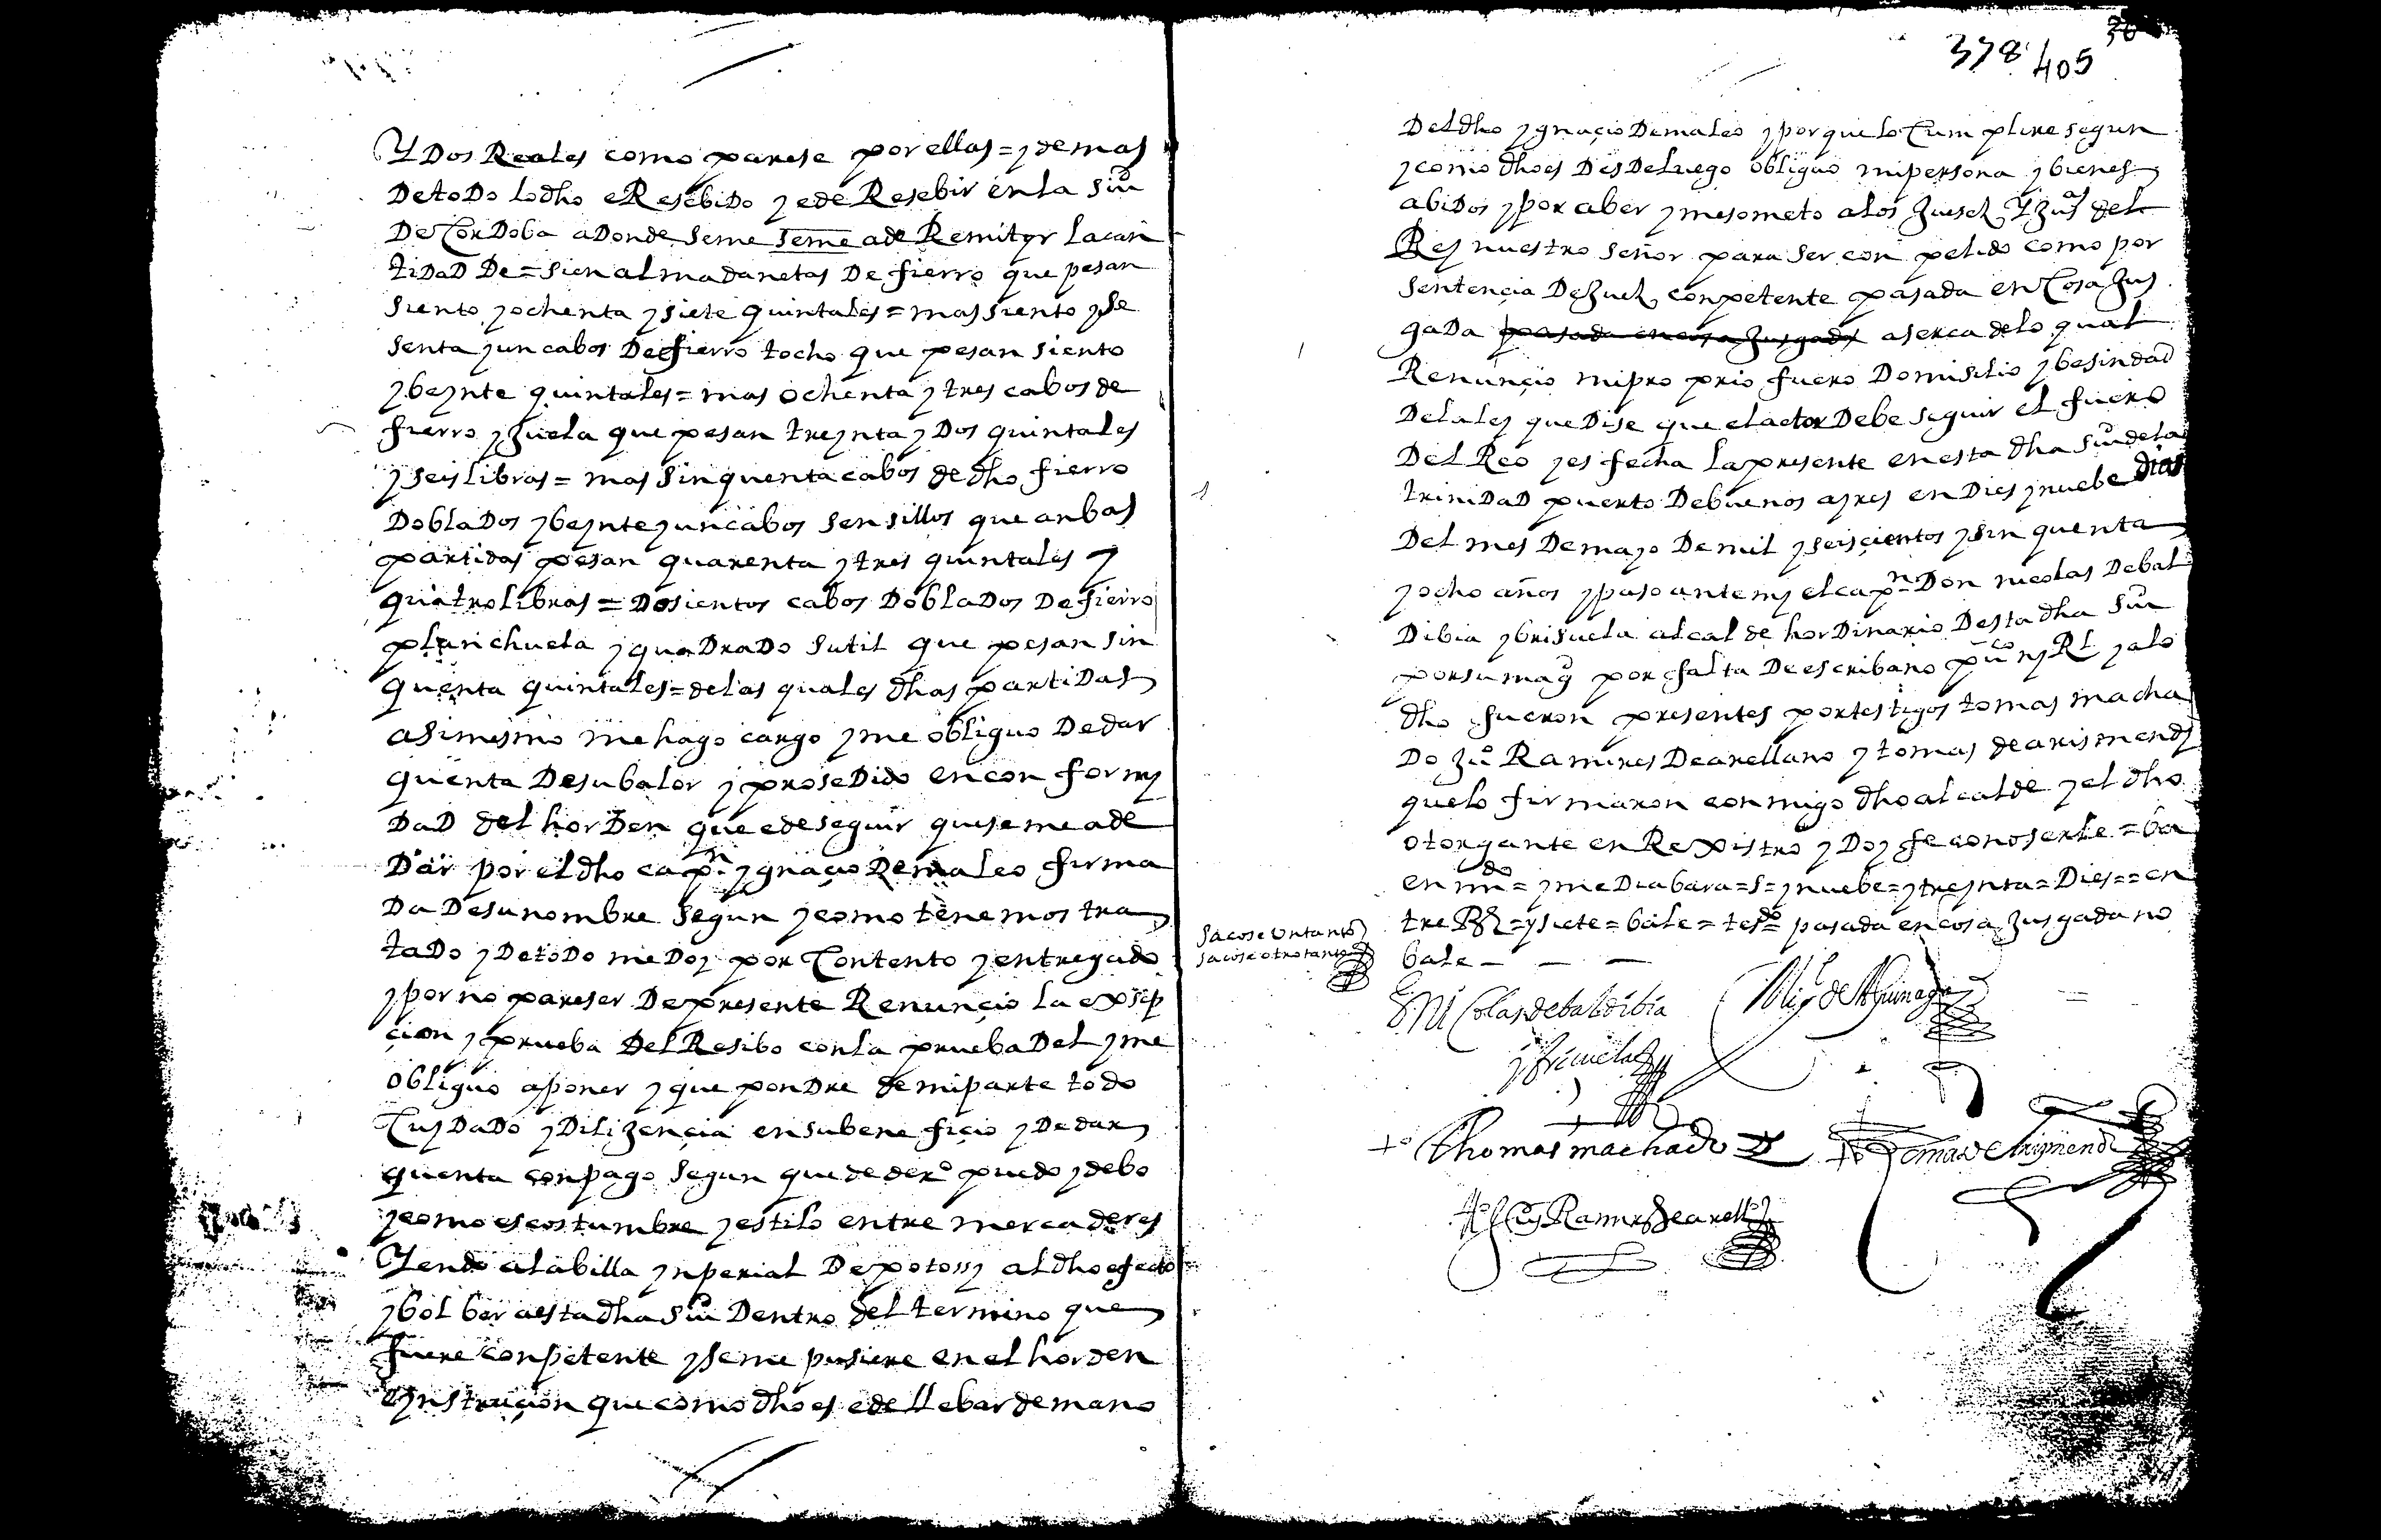 Y Dos Reales como parese por ellas = y demas
De toDo lo dho e ResebiDo y e de Resebir en la Siud
De CorDoba aDonde seme seme a de Remityr la can
tiDaD De = sien almadanetas De fierro que pesan
siento y ochenta y siete quintales = mas siento y se
senta y un cabos De fierro tocho que pesan siento
y beynte quintales = mas ochenta y tres cabos de
fierro yzuela que pesan treynta y Dos quintales
y seis libras = mas sinquenta cabos de dho fierro
DoblaDos y beynte y un cabos sensillos que anbas
partidas pesan quarenta y tres quintales y
quatro libras = Dosientos cabos DoblaDos De fierro
planchuela y quaDraDo sutil que pesan sin
quenta quintales = de las quales dhas partiDas
asimesmo me hago cargo y me obliguo De dar
quenta De su balor y proseDido en con formy
DaD del horDen que e de seguir que se me a de
Dar por el dho capn ygnaçio De maleo firma
Da De su nombre segun y como tenemos tra
taDo y De toDo me Doy por Contento y entregado
y por no pareser De presente Renunçio la exsep
çion y prueba Del Resibo con la prueba Del y me
obliguo a poner y que ponDre de mi parte todo
CuyDaDo y Dilizençia en su benefiçio y De dar
quenta con pago segun que de dero puedo y debo
y como es costumbre y estilo entre mercaderes
Yendo a la billa ynperial De potossy al dho efecto
y bolber a esta dha Siud Dentro del termino que
fuere conpetente y se me pusiere en el horden
e ynstruçion que como dho es e de llebar de mano
378 405
Del dho ygnaçio De maleo y por que lo Cumplire segun
y como dho es DesDe luego obliguo mi persona y bienes
abiDos y por aber y me someto a los Juesez Y Juas del
Rey nuestro señor para ser con pelido como por
sentençia De Juez conpetente pasada en Cosa Jus
gaDa pasada en cosa Jusgada aserca de lo qual
Renunçio mi proprio fuero Domisilio y besindad
De la ley que Dise que el actor Debe seguir el fuero
Del Reo y es fecha la presente en esta dha Siud de la
triniDaD puerto De buenos ayres en Dies y nuebe dias
Del mes De mayo De mil y seisçientos y sinquenta
y ocho años y paso ante my el capn Don nicolas De bal
Dibia y brisuela alcalde horDinario Desta dha Siud
por su magd por falta De escribano puco ny Rl y a lo
dho fueron presentes por testigos tomas macha
Do Juo Ramires De arellano y tomas de arismendy
que lo firmaron conmigo dho alcalde y el dho
otorgante en Rexistro y Doy fe conoserle = ba
en mdo = y meDia bara = s = y nuebe = y treynta = Dies = = en
tre Rs = y siete = bale = tesdo pasada en cosa Jusgada no
bale
sacose un tanto
sacose otro tanto
D. Nicolas de baldibia
y brisuela
Migl de Aguinaga
to Thomas machado
to Tomas de Arismendi
to Juo Ramires de arello